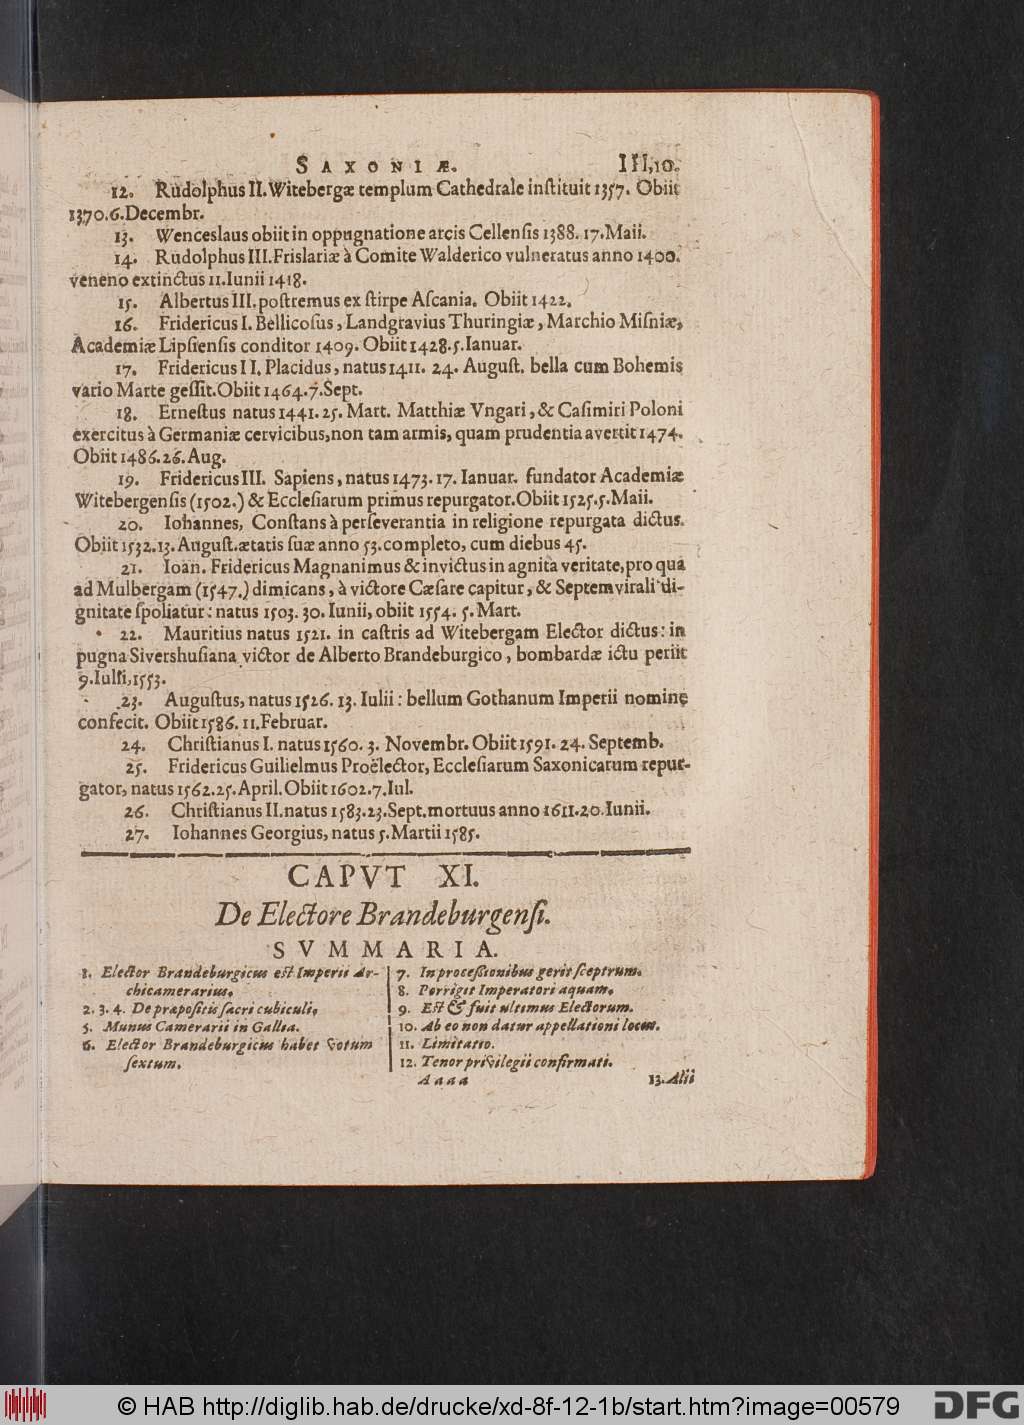 SAXONIÆ. III,10.
12. Rudolphus II. Witebergæ templum Cathedrale inſtituit 1357. Obiit
1370.6.Decembr.
13. Wenceslaus obiit in oppugnatione arcis Cellenſis 1388. 17. Maii.
14. Rudolphus III. Frislariæ à Comite Walderico vulneratus anno 1400.
veneno extinctus 11. Iunii 1418.
15. Albertus III. poſtremus ex ſtirpe Aſcania. Obiit 1422.
16. Fridericus I. Bellicoſus, Landgravius Thuringiæ, Marchio Miſniæ,
Academiæ Lipſienſis conditor 1409. Obiit 1428.5. Ianuar.
17. Fridericus II. Placidus, natus 1411. 24. Auguſt. bella cum Bohemis
vario Marte geſſit. Obiit 1464.7. Sept.
18. Erneſtus natus 1441. 25. Mart. Matthiæ Vngari, & Caſimiri Poloni
exercitus à Germaniæ cervicibus, non tam armis, quam prudentia avertit 1474.
Obiit 1486.26. Aug.
19. Fridericus III. Sapiens, natus 1473. 17. Ianuar. fundator Academiæ
Witebergenſis (1502.) & Eccleſiarum primus repurgator. Obiit 1525.5. Maii.
20. Iohannes, Conſtans à perſeverantia in religione repurgata dictus.
Obiit 1532.13. Auguſt. ætatis ſuæ anno 53. completo, cum diebus 45.
21. Ioan. Fridericus Magnanimus & invictus in agnita veritate, pro qua
ad Mulbergam (1547.) dimicans, à victore Cæſare capitur, & Septemvirali di-
gnitate ſpoliatur: natus 1503. 30. Iunii, obiit 1554. 5. Mart.
22. Mauritius natus 1521. in caſtris ad Witebergam Elector dictus: in
pugna Sivershuſiana victor de Alberto Brandeburgico, bombardæ ictu periit
9. Iulii, 1553.
23. Auguſtus, natus 1526. 13. Iulii: bellum Gothanum Imperii nomine
confecit. Obiit 1586. 11. Februar.
24. Chriſtianus I. natus 1560. 3. Novembr. Obiit 1591. 24. Septemb.
25. Fridericus Guilielmus Proëlector, Eccleſiarum Saxonicarum repur-
gator, natus 1562.25. April. Obiit 1602.7. Iul.
26. Chriſtianus II. natus 1583.23. Sept. mortuus anno 1611.20. Iunii.
27. Iohannes Georgius, natus 5. Martii 1585.
CAPVT XI.
De Electore Brandeburgenſi.
SVMMARIA.
1. Elector Brandeburgicus est Imperii Ar-
chicamerarius.
2. 3. 4. De præpoſitis ſacri cubiculi.
5. Munus Camerarii in Gallia.
6. Elector Brandeburgicus habet votum
ſextum.
7. In proceßionibus gerit ſceptrum.
8. Porrigit Imperatori aquam.
9. Est & fuit ultimus Electorum.
10. Ab eo non datur appellationi locus.
11. Limitatio.
12. Tenor privilegii confirmati.
Aaaa 13. Alii
© HAB http://diglib.hab.de/drucke/xd-8f-12-1b/start.htm?image=00579
DFG